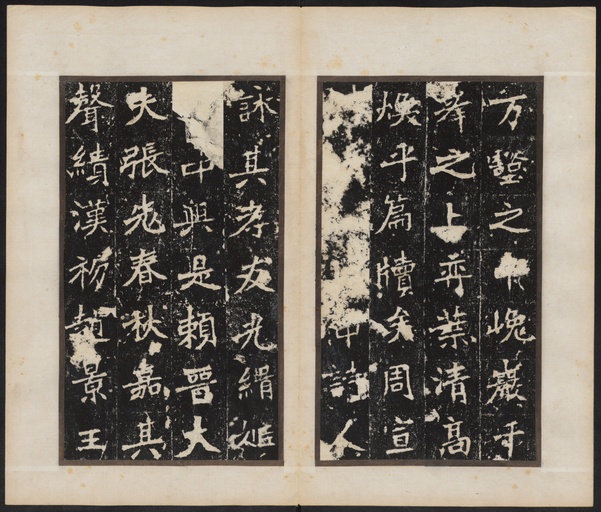 方壑之巖千
峯之上弈葉清高
煥乎篇牘矣周宣
仲詩人
詠其孝友光緝姬
中興是賴晉大
夫張老春秋嘉其
聲績漢初趙景王